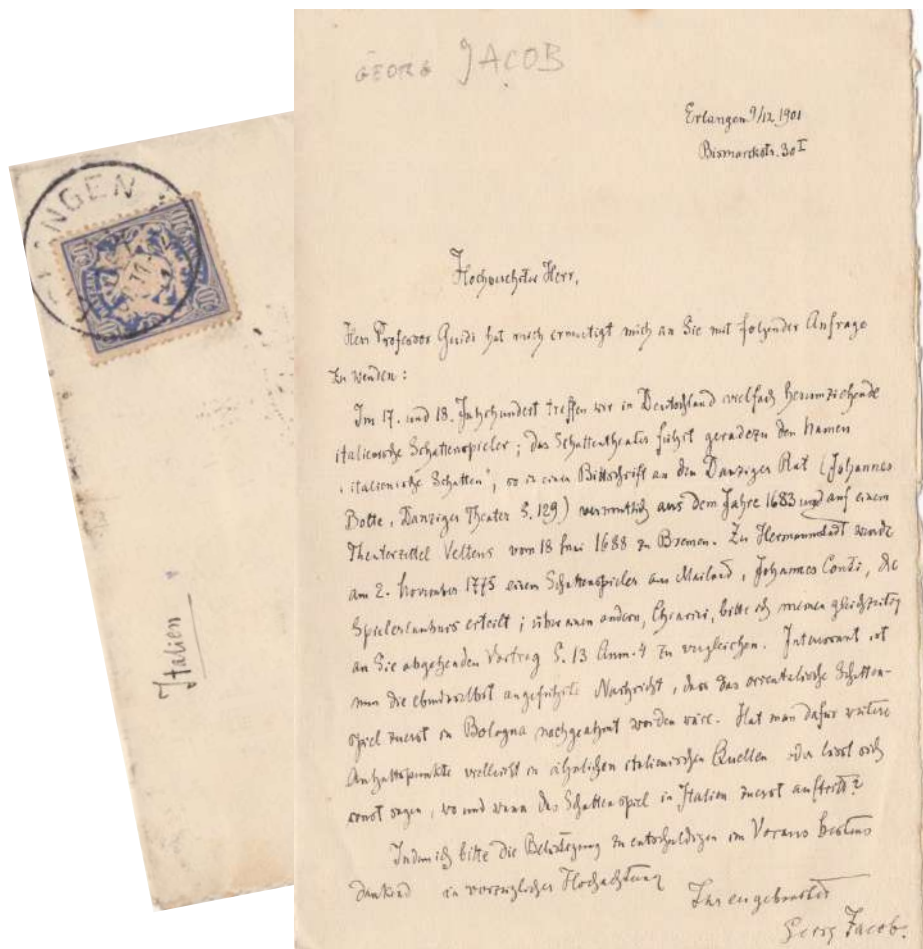 GEORG JACOB
Erlangen 9/12 1901
Bismarckstr. 30 I
Hochverehrter Herr,
Herr Professor Guidi hat mich ermutigt mich an Sie mit folgender Anfrage
zu wenden:
Im 17. und 18. Jahrhundert treffen wir in Deutschland vielfach herumziehende
italienische Schattenspieler; das Schattentheater führt geradezu den Namen
‚italienische Schatten‘, so in einer Bittschrift an den Danziger Rat (Johannes
Bolte, Danziger Theater S. 129) vermutlich aus dem Jahre 1683 und auf einem
Theaterzettel Veltens vom 18 Juni 1688 zu Bremen. Zu Hermannstadt wurde
am 2. November 1775 einem Schattenspieler aus Mailand, Johannes Conti, die
Spielerlaubnis erteilt; über einen andern, Chiarini, bitte ich meinen gleichzeitig
an Sie abgehenden Vortrag S. 13 Anm. 4 zu vergleichen. Interessant ist
nun die ebendaselbst angeführte Nachricht, dass das orientalische Schatten-
spiel zuerst in Bologna nachgeahmt worden wäre. Hat man dafür weitere
Anhaltspunkte vielleicht in ähnlichen italienischen Quellen oder lässt sich
sonst sagen, wo und wann das Schattenspiel in Italien zuerst auftritt?
Indem ich bitte die Belästigung zu entschuldigen im Voraus bestens
dankend in vorzüglicher Hochachtung
Ihr ergebenster
Georg Jacob.
ANGEN
Italien